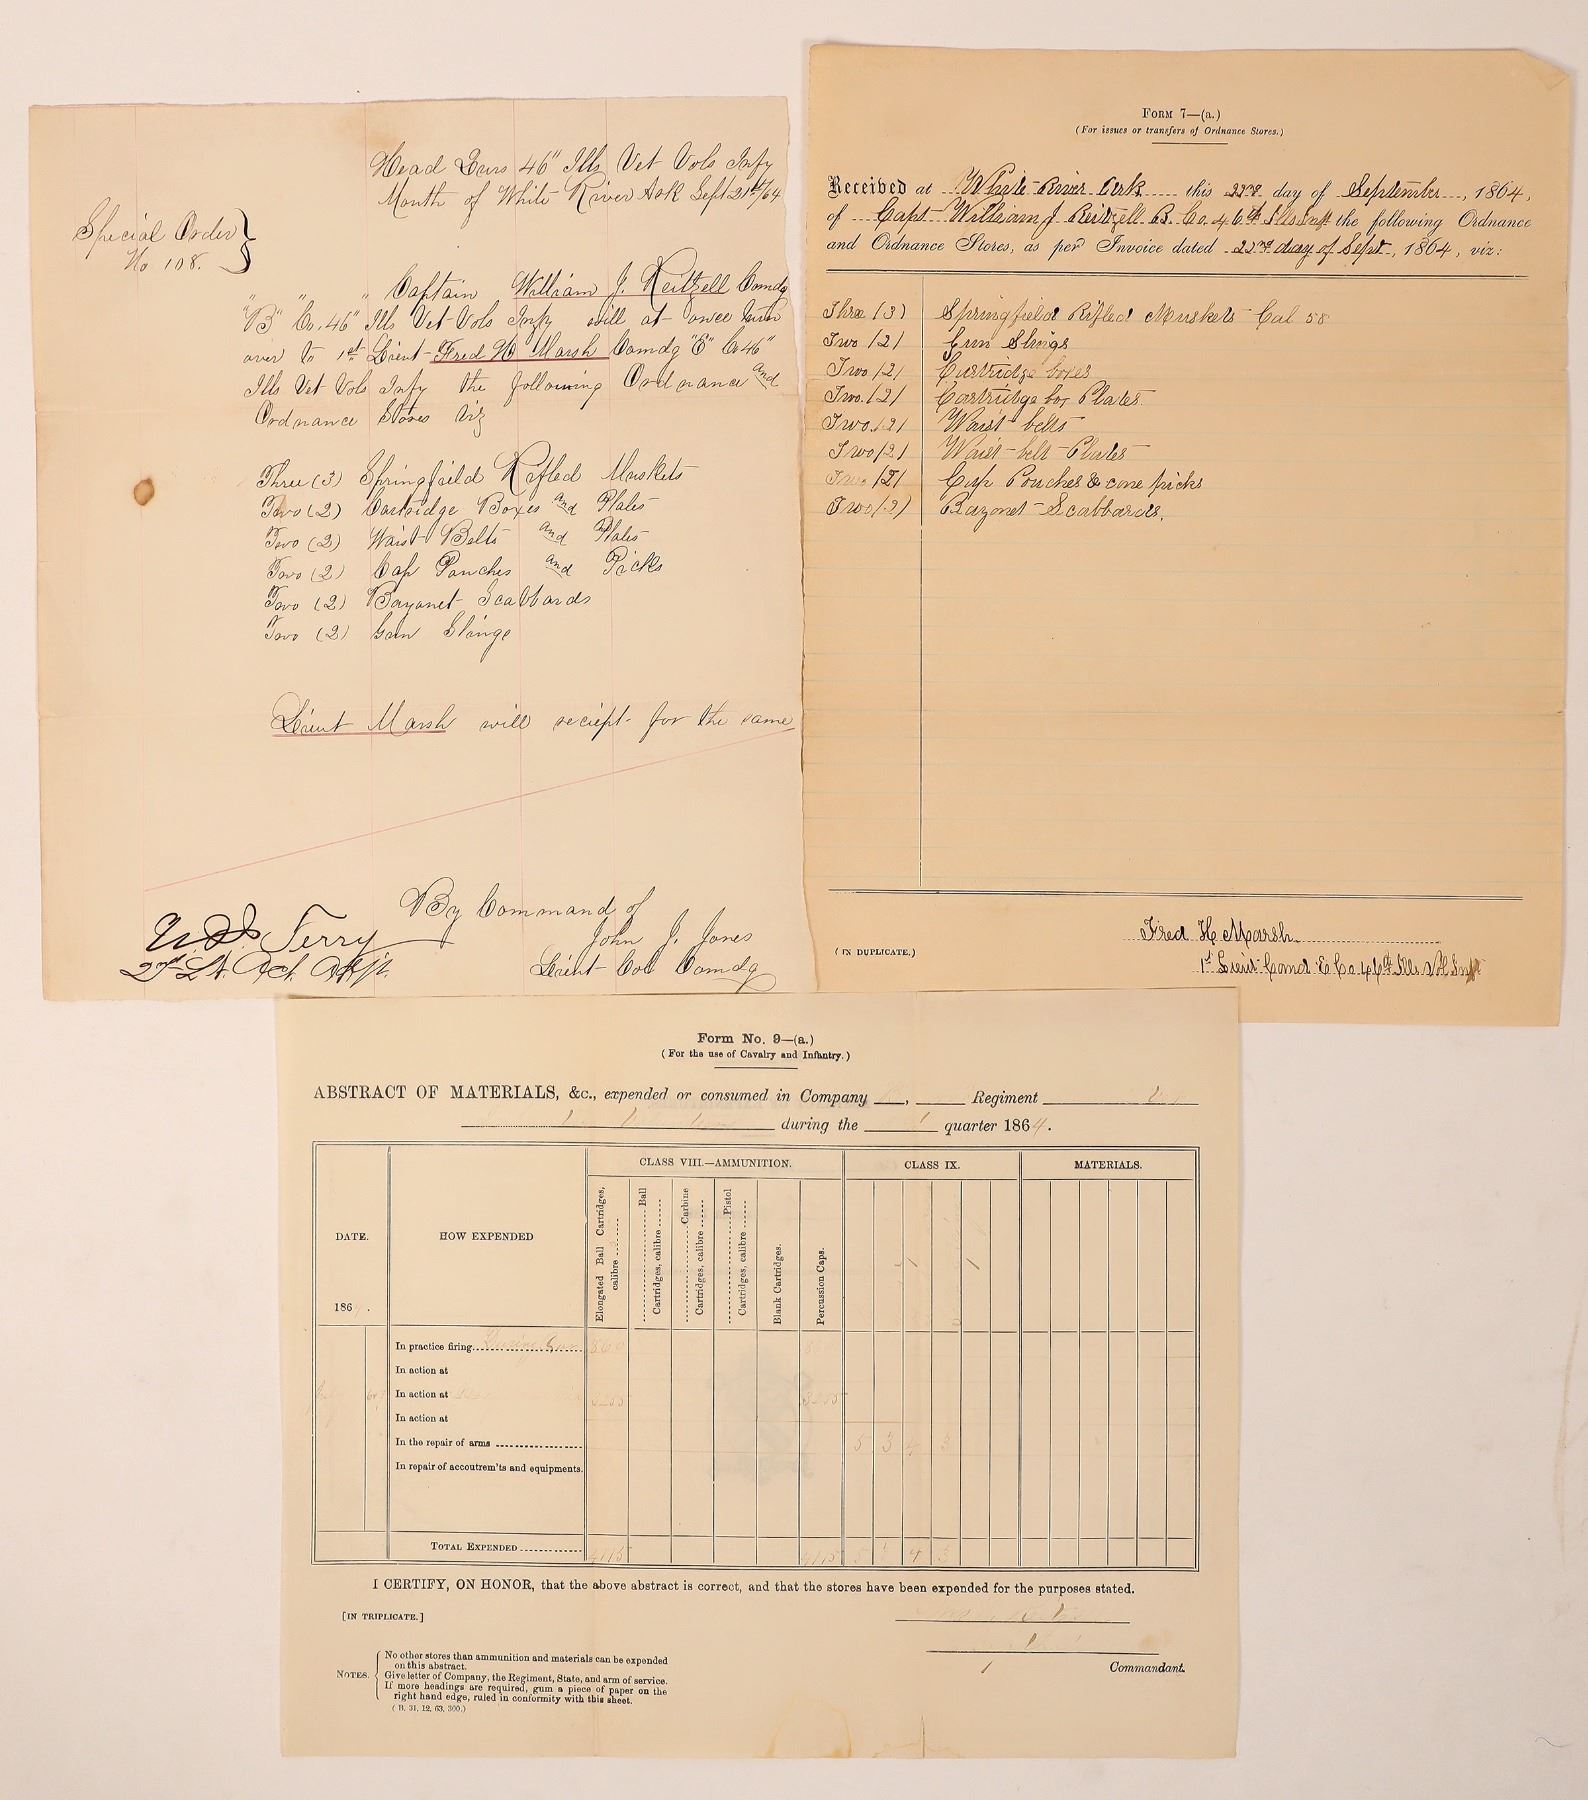 Head Qurs 46" Ills Vet Vols Infy
Mouth of White River Ark Sept 21st/64
Special Order
No 108.
" " " Captain William J. Reitzell Comdg
"B" Co. 46" Ills Vet Vols Infy will at once turn
over to 1st Lieut Fred H Marsh Comdg "E" Co 46"
Ills Vet Vols Infy the following Ordnance and
Ordnance Stores Viz
Three (3) Springfield Rifled Muskets
Two (2) Cartridge Boxes and Plates
Two (2) Waist Belts and Plates
Two (2) Cap Pouches and Picks
Two (2) Bayonet Scabbards
Two (2) Gun Slings
Lieut Marsh will reciept for the same
By Command of
John J. Jones
Lieut Col Comdg
Terry
2nd Lt. Act. Adjt.
Form 7—(a.)
(For issues or transfers of Ordnance Stores.)
Received at White River Ark this 22nd day of September, 1864,
of Capt William J Reitzell B. Co. 46th Ills Inft the following Ordnance
and Ordnance Stores, as per Invoice dated 22nd day of Sept, 1864, viz:
Three (3) Springfield Rifled Muskets Cal 58
Two (2) Gun Slings
Two (2) Cartridge boxes
Two (2) Cartridge box Plates
Two (2) Waist belts
Two (2) Waist-belt-Plates
Two (2) Cap Pouches & cone picks
Two (2) Bayonet Scabbards.
(IN DUPLICATE.)
Fred H Marsh
1st Lieut Comd E Co 46th Ills Vol Inft
Form No. 9—(a.)
(For the use of Cavalry and Infantry.)
ABSTRACT OF MATERIALS, &c., expended or consumed in Company , Regiment
during the quarter 1864.
DATE. HOW EXPENDED CLASS VIII.—AMMUNITION. CLASS IX. MATERIALS.
Elongated Ball Cartridges, calibre
Ball Cartridges, calibre
Carbine Cartridges, calibre
Pistol Cartridges, calibre
Blank Cartridges.
Percussion Caps.
186 .
In practice firing
In action at
In action at 3255 3255
In action at
In the repair of arms 5 3 4 3
In repair of accoutrem'ts and equipments.
Total Expended 4115 4115 5 3 4 3
I CERTIFY, ON HONOR, that the above abstract is correct, and that the stores have been expended for the purposes stated.
[IN TRIPLICATE.]
Commandant.
NOTES. No other stores than ammunition and materials can be expended
on this abstract.
Give letter of Company, the Regiment, State, and arm of service.
If more headings are required, gum a piece of paper on the
right hand edge, ruled in conformity with this sheet.
( B. 31, 12, 63, 300.)